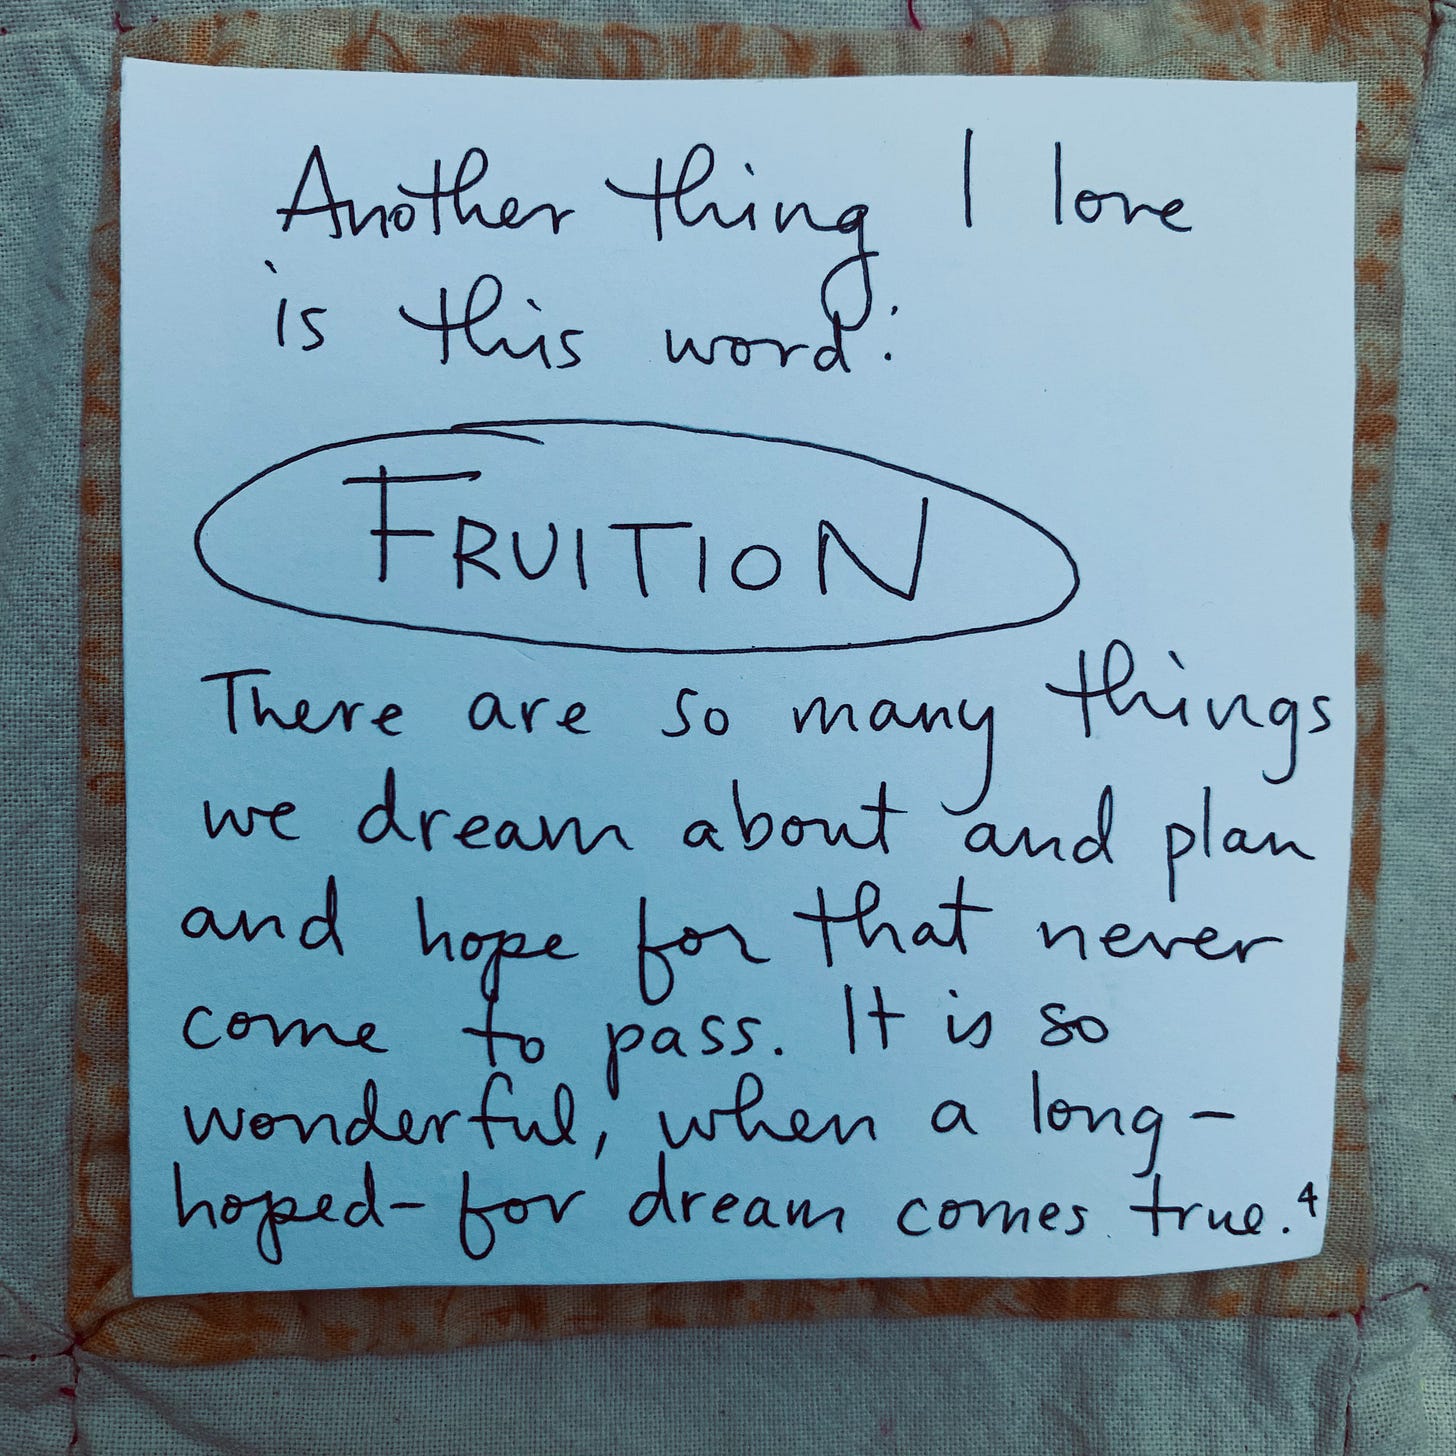 Another thing I love
is this word:
FRUITION
There are so many things
we dream about and plan
and hope for that never
come to pass. It is so
wonderful, when a long-
hoped-for dream comes true.⁴